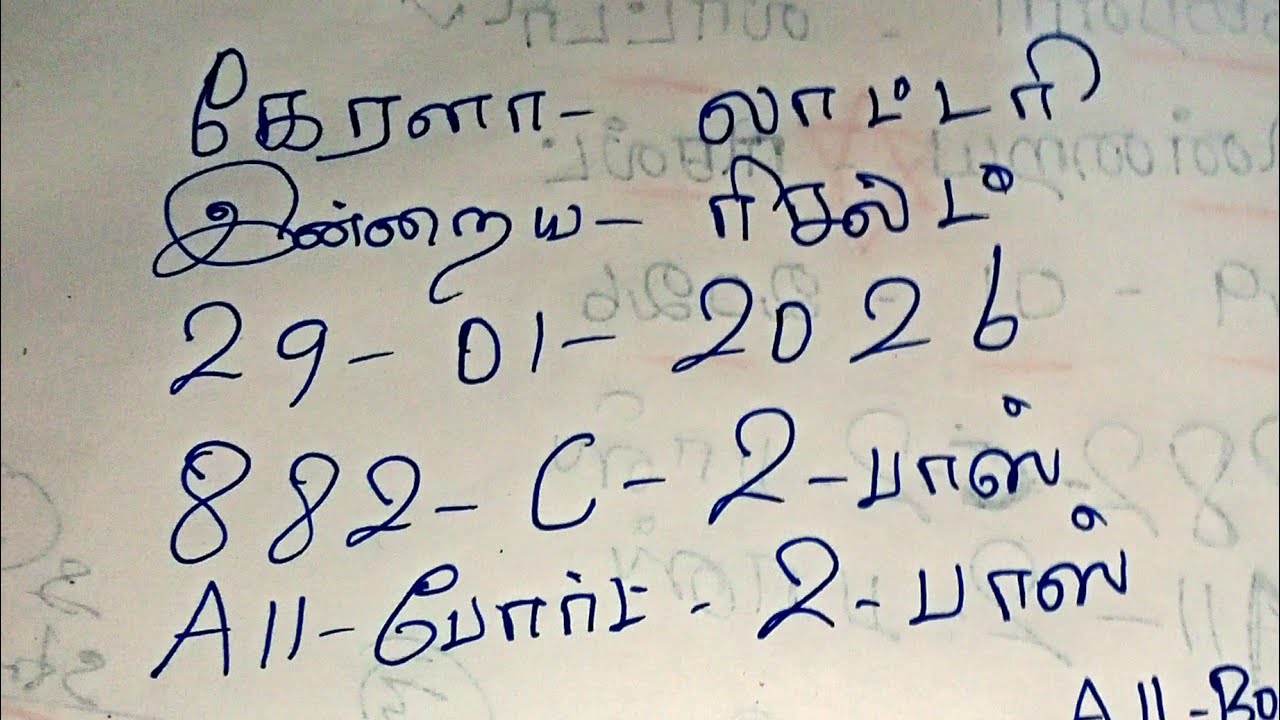 கேரளா- லாட்டரி
இன்றைய- ரிசல்ட்
29-01-2026
882-C-2-பாஸ்
All-போர்ட்-2-பாஸ்
All-Bo